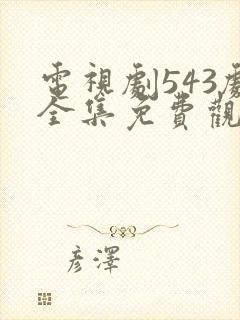 電視劇543劇
全集免費觀
彦澤